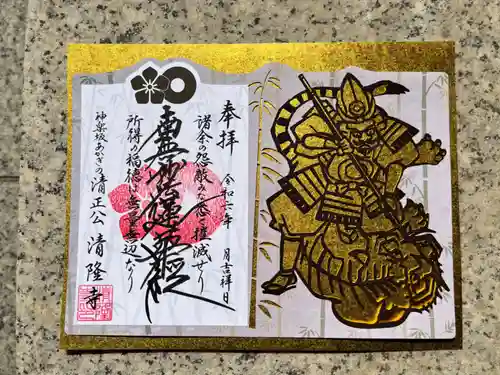 奉拝
令和六年 月吉祥日
諸余の怨敵みな悉く摧滅せり
南無妙法蓮華経
所得の福徳は無量無辺なり
神楽坂あかぎの清正公 清隆寺